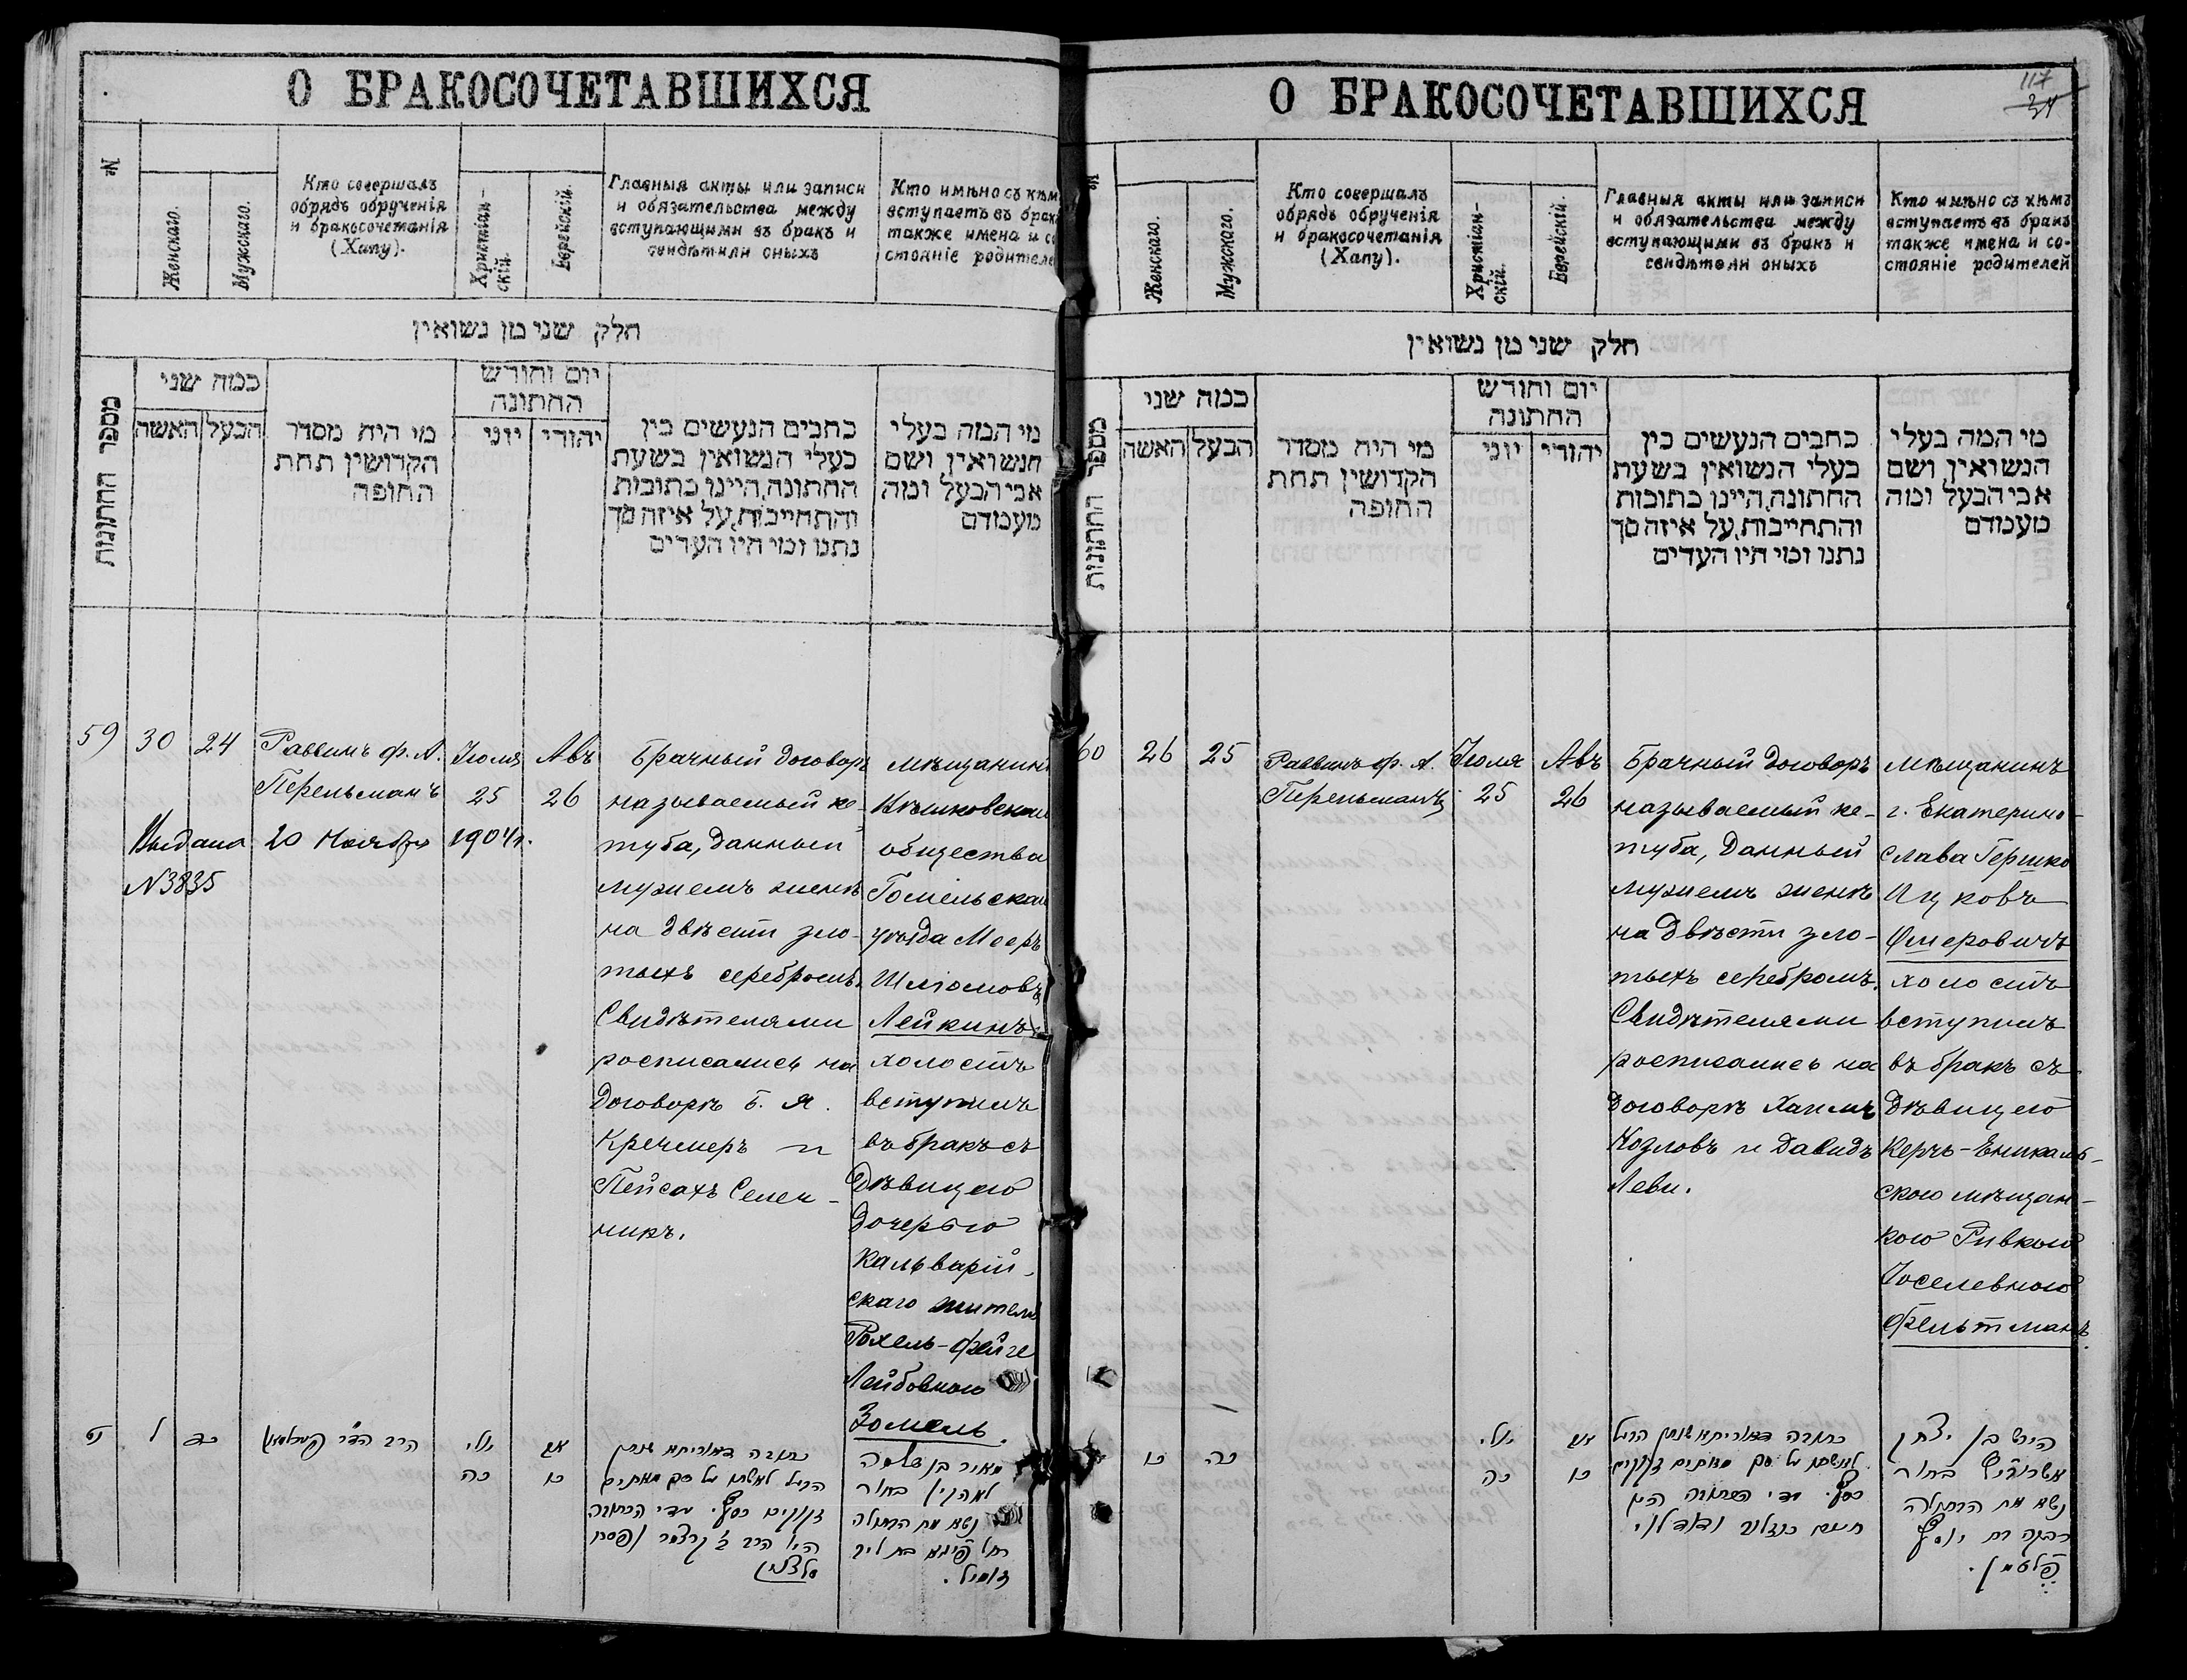 О БРАКОСОЧЕТАВШИХСЯ
№
Женскаго.
Мужскаго.
Кто совершалъ
обрядъ обрученія
и бракосочетанія
(Хапу).
Христіан-
скій.
Еврейскій.
Главныя акты или записи
и обязательства между
вступающими въ бракъ и
свидѣтили оныхъ
Кто имѣно съ кѣм
вступаетъ въ брак
также имена и со
стояніе родителе
חלק שני מן נשואין
מספר החתונות
כמה שני
האשה
הבעל
מי היה מסדר
הקדושין תחת
החופה
יום וחודש
החתונה
יוני
יהודי
כתבים הנעשים בין
בעלי הנשואין בשעת
החתונה, היינו כתובות
והתחייבות, על איזה סך
נתנו ומי היו העדים
מי המה בעלי
הנשואין ושם
אבי הבעל ומה
מעמדם
59
30
24
Раввинъ ф. А.
Перельманъ
Іюля
25
Авъ
26
Выдана 20 Ноября 1904 г.
N 3835
Брачный договоръ
называемый ке-
туба, данный
мужемъ женѣ
на двѣсти зло-
тыхъ серебромъ.
Свидѣтелями
росписались на
договорѣ Б. Я.
Кречмеръ и
Пейсахъ
никъ.
мѣщанинъ
общества
Гомельскаго
уѣзда Мееръ
Шліомовъ
Лейкинъ
холостъ
вступилъ
въ бракъ съ
дѣвицею
дочерью
Кальварій-
скаго жителя
Рохель-Фейге
Лейбовною
Зомель.
נט
ל
כד
יולי
כה
אב
כו
מאיר בן שלמה
בחור
נשא את הבתולה
זאמיל.
О БРАКОСОЧЕТАВШИХСЯ
117
34
№
Женскаго.
Мужскаго.
Кто совершалъ
обрядъ обрученія
и бракосочетанія
(Хапу).
Христіан-
скій.
Еврейскій.
Главныя акты или записи
и обязательства между
вступающими въ бракъ и
свидѣтели оныхъ
Кто имѣно съ кѣмъ
вступаетъ въ бракъ
также имена и со-
стояніе родителей
חלק שני מן נשואין
מספר החתונות
כמה שני
האשה
הבעל
מי היה מסדר
הקדושין תחת
החופה
יום וחודש
החתונה
יוני
יהודי
כתבים הנעשים בין
בעלי הנשואין בשעת
החתונה, היינו כתובות
והתחייבות, על איזה סך
נתנו ומי היו העדים
מי המה בעלי
הנשואין ושם
אבי הבעל ומה
מעמדם
60
26
25
Раввинъ ф. А.
Перельманъ
Іюля
25
Авъ
26
Брачный договоръ
называемый ке-
туба, данный
мужемъ женѣ
на двѣсти зло-
тыхъ серебромъ.
Свидѣтелями
росписались на
договорѣ Хаимъ
Козловъ и Давидъ
Леви.
Мѣщанинъ
г. Екатерино-
слава Гершко
Ицковъ
Ошеровичъ
холостъ
вступилъ
въ бракъ съ
дѣвицею
Керчь-Еникаль-
скою мѣщан-
кою Ривкою
Іоселевною
Фельтманъ.
כו
כה
יולי
כה
אב
כו
הירש בן יצחק
אשראוויץ בחור
נשא את הבתולה
רבקה בת יוסף
פֿעלטמאן.